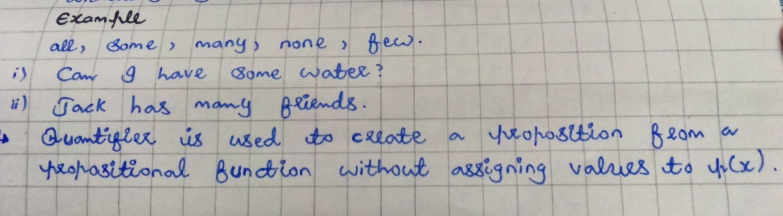 Example
all, some, many, none, few.
i) Can I have some water?
ii) Jack has many friends.
Quantifier is used to create a proposition from a
propositional function without assigning values to p(x).